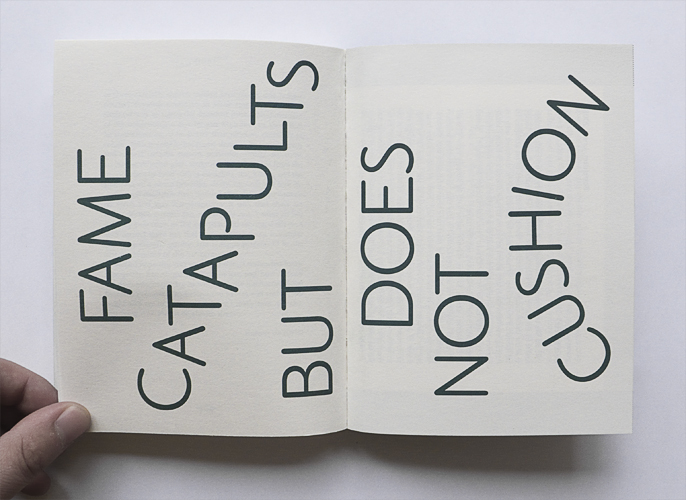 FAME
CATAPULTS
BUT
DOES
NOT
CUSHION